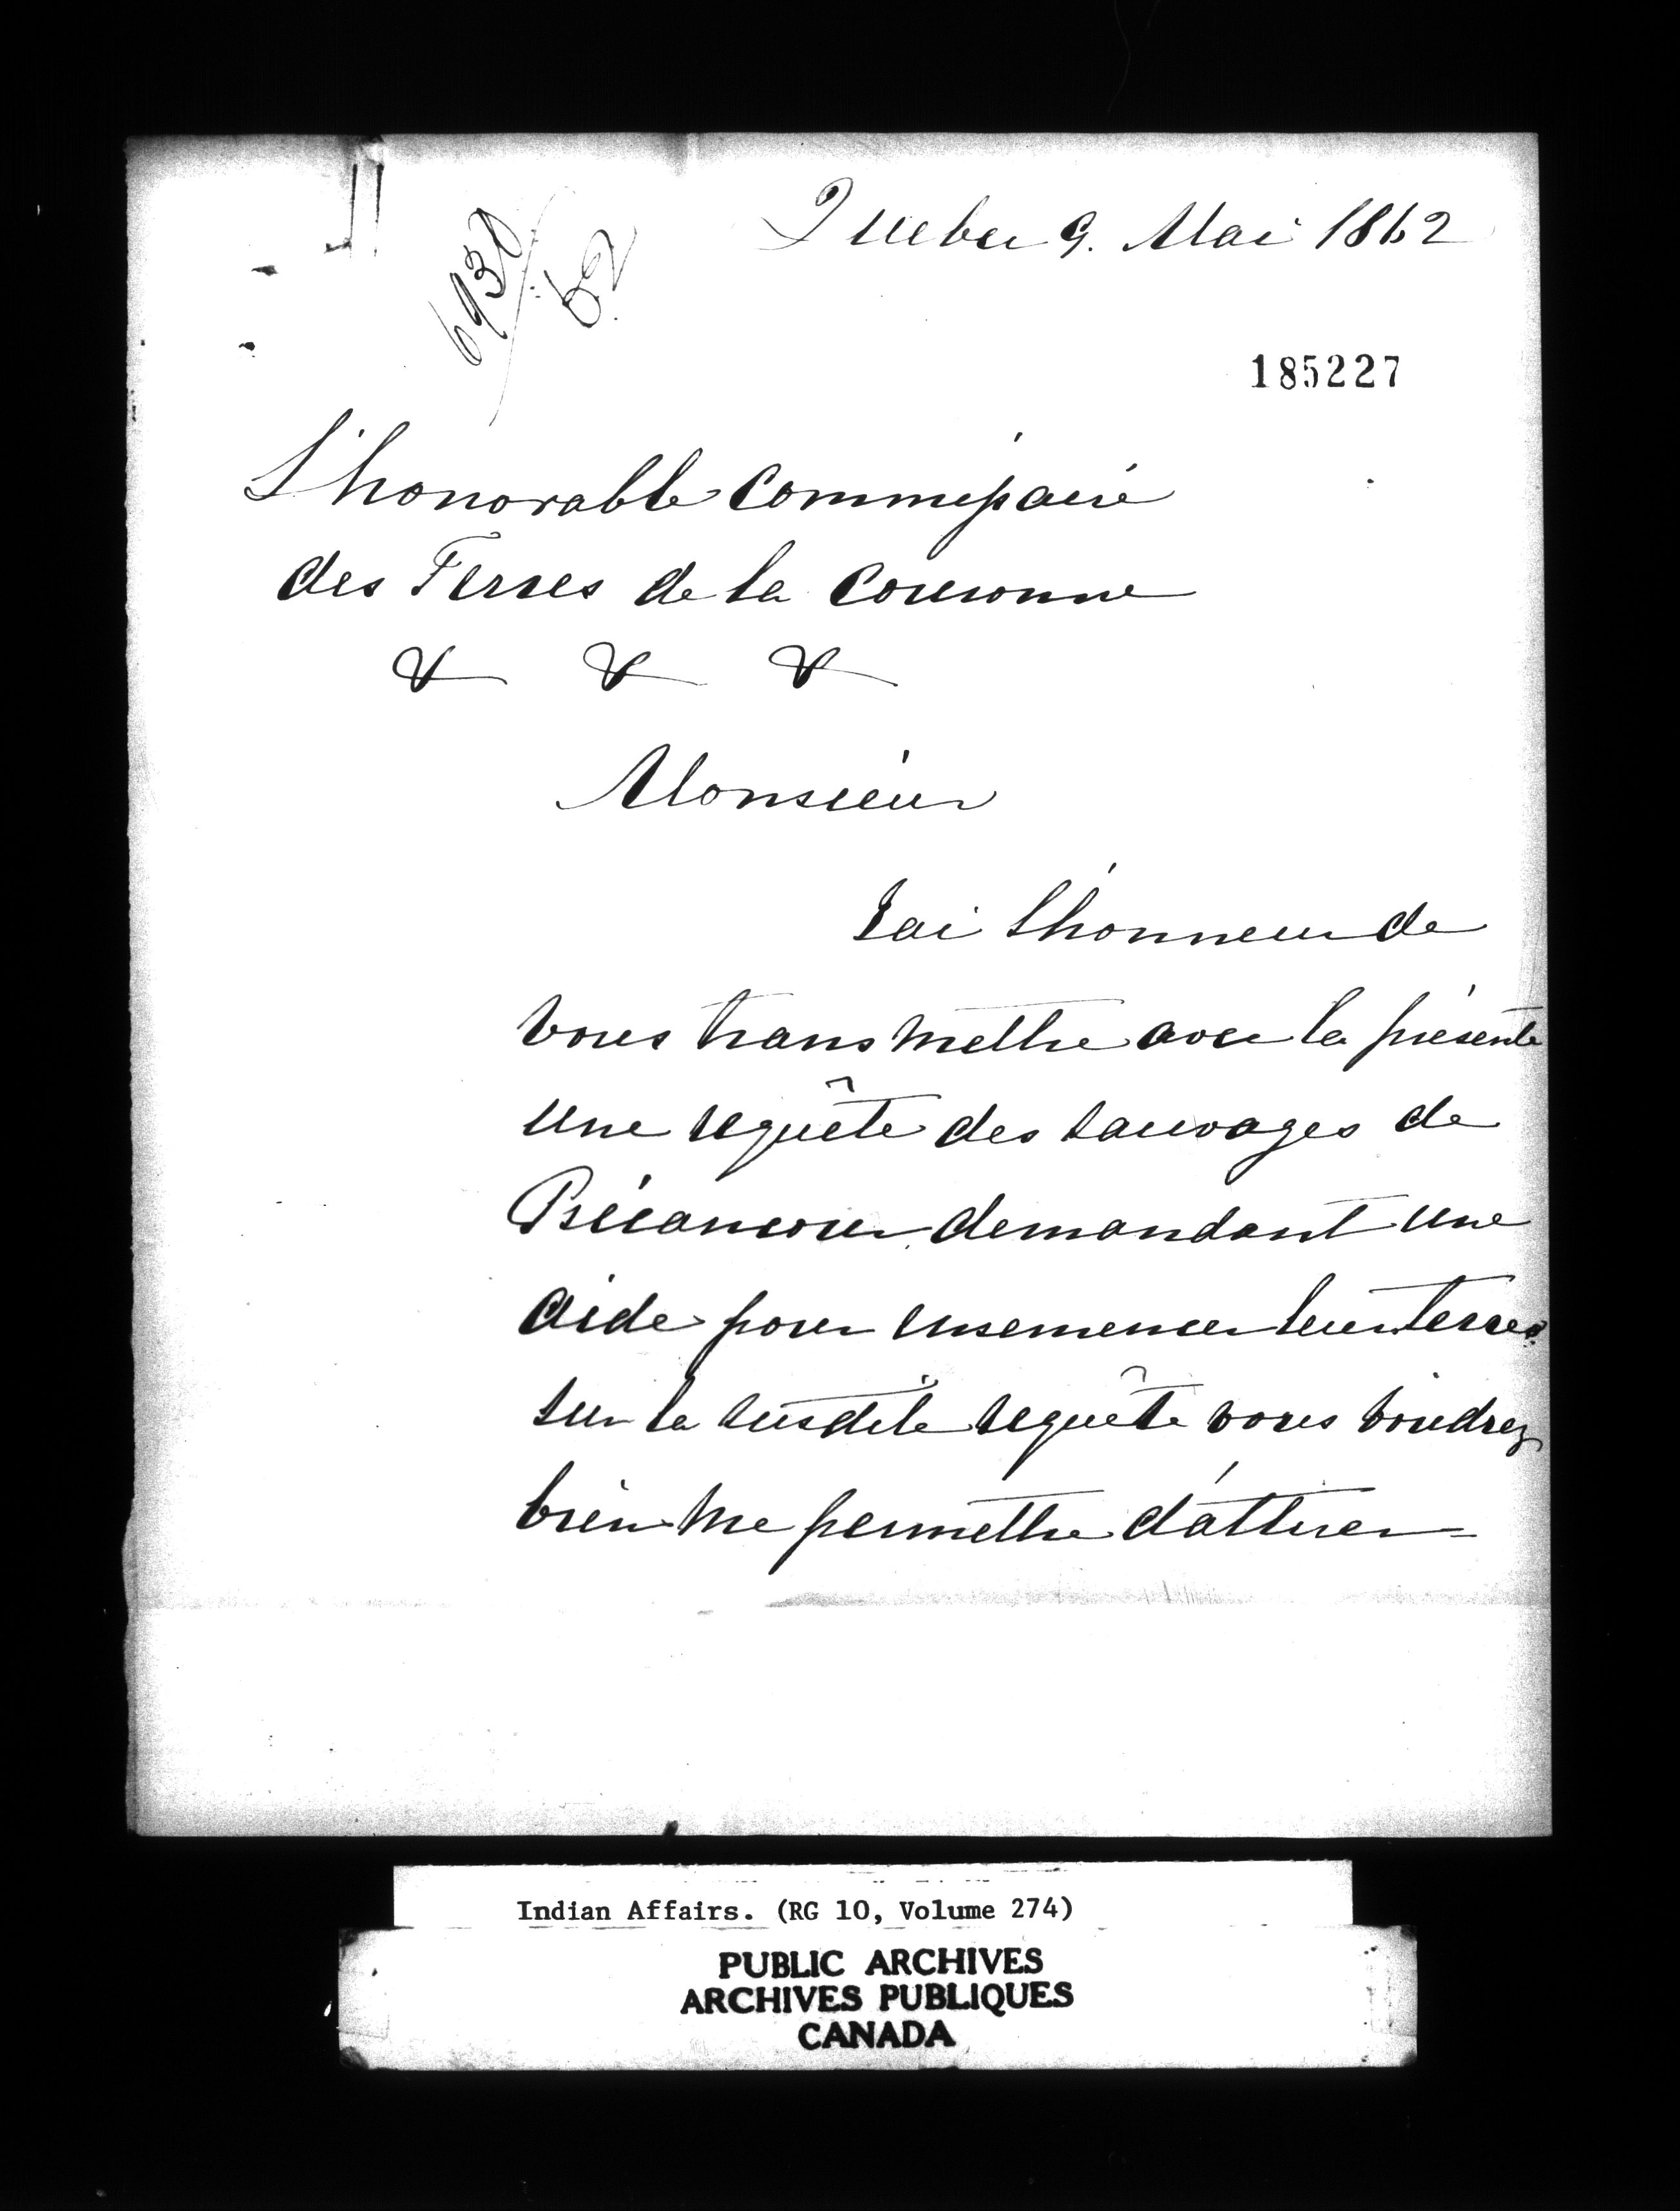 Quebec 9. Mai 1862
6930/62
185227
L'honorable Commissaire
des Terres de la Couronne
& & &
Monsieur
J'ai l'honneur de
vous transmettre avec la présente
une requête des sauvages de
Bécancour demandant une
aide pour ensemencer leur terres
sur la susdite requête vous voudrez
bien me permettre d'attirer
Indian Affairs. (RG 10, Volume 274)
PUBLIC ARCHIVES
ARCHIVES PUBLIQUES
CANADA